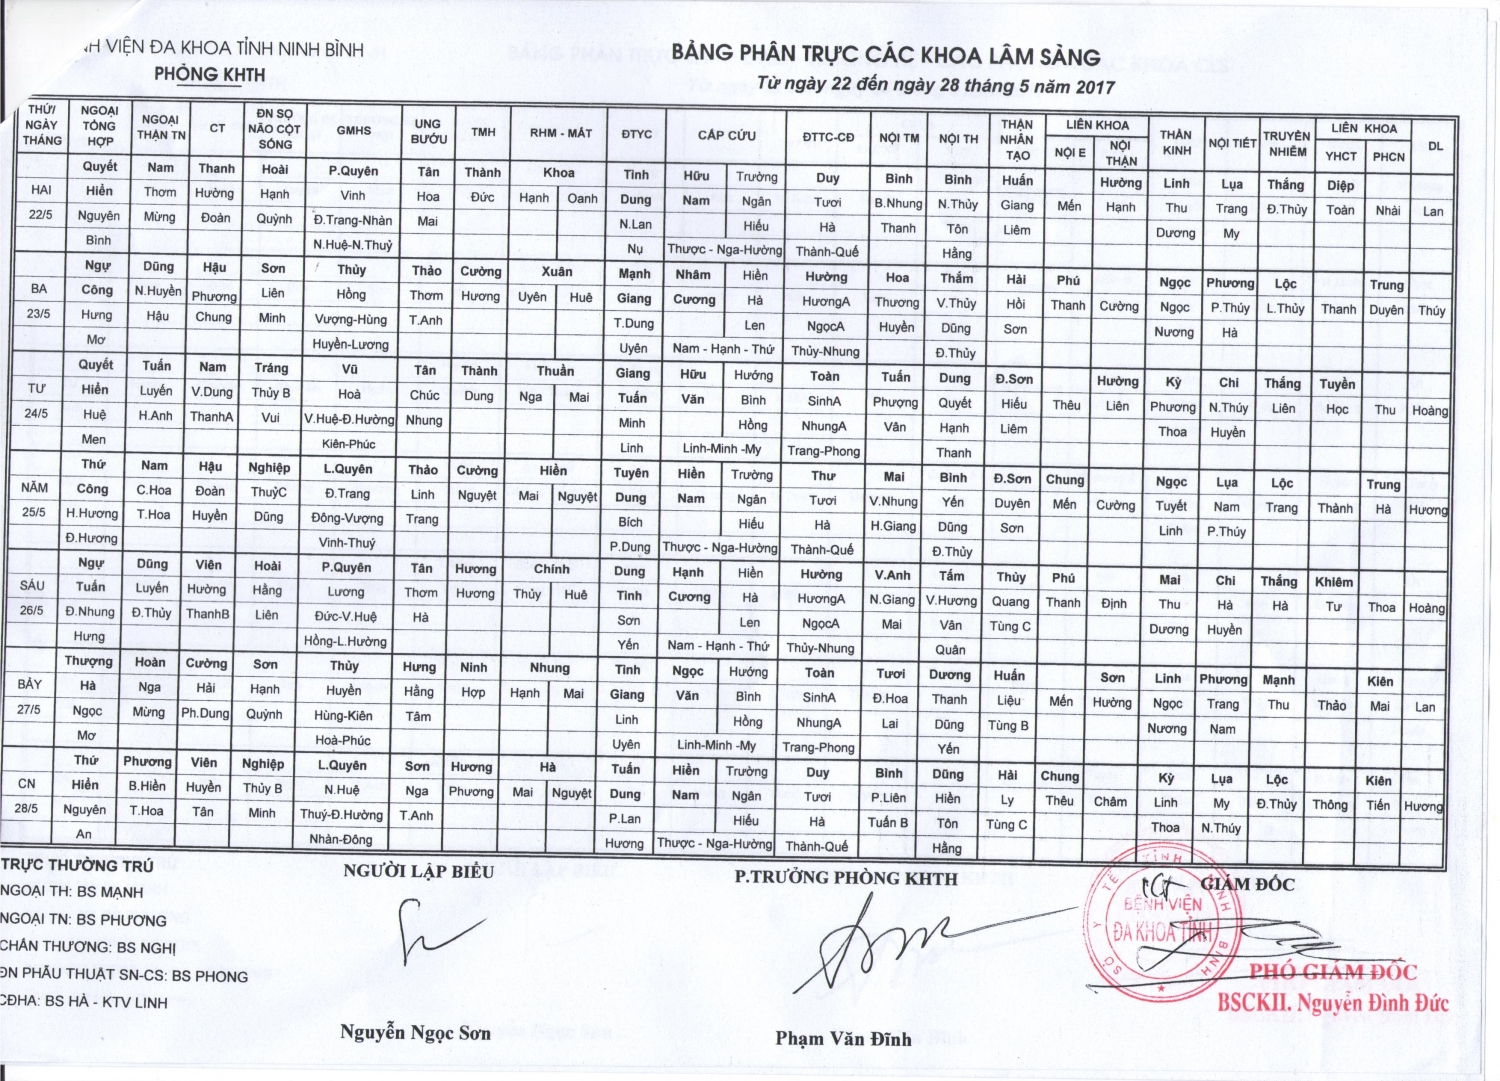 NH VIỆN ĐA KHOA TỈNH NINH BÌNH
PHÒNG KHTH
BẢNG PHÂN TRỰC CÁC KHOA LÂM SÀNG
Từ ngày 22 đến ngày 28 tháng 5 năm 2017
THỨ/ NGÀY THÁNG | NGOẠI TỔNG HỢP | NGOẠI THẬN TN | CT | ĐN SỌ NÃO CỘT SỐNG | GMHS | UNG BƯỚU | TMH | RHM - MẮT | ĐTYC | CẤP CỨU | ĐTTC-CĐ | NỘI TM | NỘI TH | THẬN NHÂN TẠO | LIÊN KHOA | NỘI E | NỘI THẬN | THẦN KINH | NỘI TIẾT | TRUYỀN NHIỄM | LIÊN KHOA | YHCT | PHCN | DL
Quyết Nam Thanh Hoài P.Quyên Tân Thành Khoa Tình Hữu Trường Duy Bình Bình Huấn Hường Linh Lụa Thắng Diệp
HAI Hiển Thơm Hường Hạnh Vinh Hoa Đức Hạnh Oanh Dung Nam Ngân Tươi B.Nhung N.Thủy Giang Mến Hạnh Thu Trang Đ.Thủy Toàn Nhài Lan
22/5 Nguyên Mừng Đoàn Quỳnh Đ.Trang-Nhàn Mai N.Lan Hiếu Hà Thanh Tôn Liêm Dương My
Bình N.Huệ-N.Thuỷ Nụ Thược - Nga-Hường Thành-Quế Hằng
Ngự Dũng Hậu Sơn Thủy Thảo Cường Xuân Mạnh Nhâm Hiền Hường Hoa Thắm Hải Phú Ngọc Phương Lộc Trung
BA Công N.Huyền Phương Liên Hồng Thơm Hương Uyên Huê Giang Cương Hà HươngA Thương V.Thủy Hồi Thanh Cường Ngọc P.Thúy L.Thủy Thanh Duyên Thúy
23/5 Hưng Hậu Chung Minh Vượng-Hùng T.Anh T.Dung Len NgọcA Huyền Dũng Sơn Nương Hà
Mơ Huyền-Lương Uyên Nam - Hạnh - Thứ Thủy-Nhung Đ.Thủy
Quyết Tuấn Nam Tráng Vũ Tân Thành Thuần Giang Hữu Hướng Toàn Tuấn Dung Đ.Sơn Hường Kỳ Chi Thắng Tuyền
TƯ Hiển Luyến V.Dung Thủy B Hoà Chúc Dung Nga Mai Tuấn Văn Bình SinhA Phượng Quyết Hiếu Thêu Liên Phương N.Thúy Liên Học Thu Hoàng
24/5 Huệ H.Anh ThanhA Vui V.Huệ-Đ.Hường Nhung Minh Hồng NhungA Vân Hạnh Liêm Thoa Huyền
Men Kiên-Phúc Linh Linh-Minh -My Trang-Phong Thanh
Thứ Nam Hậu Nghiệp L.Quyên Thảo Cường Hiền Tuyên Hiền Trường Thư Mai Bình Đ.Sơn Chung Ngọc Lụa Lộc Trung
NĂM Công C.Hoa Đoàn ThuỷC Đ.Trang Linh Nguyệt Mai Nguyệt Dung Nam Ngân Tươi V.Nhung Yến Duyên Mến Cường Tuyết Nam Trang Thành Hà Hương
25/5 H.Hương T.Hoa Huyền Dũng Đông-Vượng Trang Bích Hiếu Hà H.Giang Dũng Sơn Linh P.Thúy
Đ.Hương Vinh-Thuý P.Dung Thược - Nga-Hường Thành-Quế Đ.Thủy
Ngự Dũng Viên Hoài P.Quyên Tân Hương Chính Dung Hạnh Hiền Hường V.Anh Tấm Thủy Phú Mai Chi Thắng Khiêm
SÁU Tuấn Luyến Hường Hằng Lương Thơm Hương Thủy Huê Tình Cương Hà HươngA N.Giang V.Hương Quang Thanh Định Thu Hà Hà Tư Thoa Hoàng
26/5 Đ.Nhung Đ.Thủy ThanhB Liên Đức-V.Huệ Hà Sơn Len NgọcA Mai Vân Tùng C Dương Huyền
Hưng Hồng-L.Hường Yến Nam - Hạnh - Thứ Thủy-Nhung Quân
Thượng Hoàn Cường Sơn Thủy Hưng Ninh Nhung Tình Ngọc Hướng Toàn Tươi Dương Huấn Sơn Linh Phương Mạnh Kiên
BẢY Hà Nga Hải Hạnh Huyền Hằng Hợp Hạnh Mai Giang Văn Bình SinhA Đ.Hoa Thanh Liệu Mến Hường Ngọc Trang Thu Thảo Mai Lan
27/5 Ngọc Mừng Ph.Dung Quỳnh Hùng-Kiên Tâm Linh Hồng NhungA Lai Dũng Tùng B Nương Nam
Mơ Hoà-Phúc Uyên Linh-Minh -My Trang-Phong Yến
Thứ Phương Viên Nghiệp L.Quyên Sơn Hương Hà Tuấn Hiền Trường Duy Bình Dũng Hải Chung Kỳ Lụa Lộc Kiên
CN Hiển B.Hiền Huyền Thủy B N.Huệ Nga Phương Mai Nguyệt Dung Nam Ngân Tươi P.Liên Hiền Ly Thêu Châm Linh My Đ.Thủy Thông Tiến Hương
28/5 Nguyên T.Hoa Tân Minh Thuý-Đ.Hường T.Anh P.Lan Hiếu Hà Tuấn B Tôn Tùng C Thoa N.Thúy
An Nhàn-Đông Hương Thược - Nga-Hường Thành-Quế Hằng
TRỰC THƯỜNG TRÚ
NGOẠI TH: BS MẠNH
NGOẠI TN: BS PHƯƠNG
CHẤN THƯƠNG: BS NGHỊ
ĐN PHẪU THUẬT SN-CS: BS PHONG
CĐHA: BS HÀ - KTV LINH
NGƯỜI LẬP BIỂU
Nguyễn Ngọc Sơn
P.TRƯỞNG PHÒNG KHTH
Phạm Văn Đĩnh
GIÁM ĐỐC
SỞ Y TẾ TỈNH NINH BÌNH
BỆNH VIỆN
ĐA KHOA TỈNH
PHÓ GIÁM ĐỐC
BSCKII. Nguyễn Đình Đức